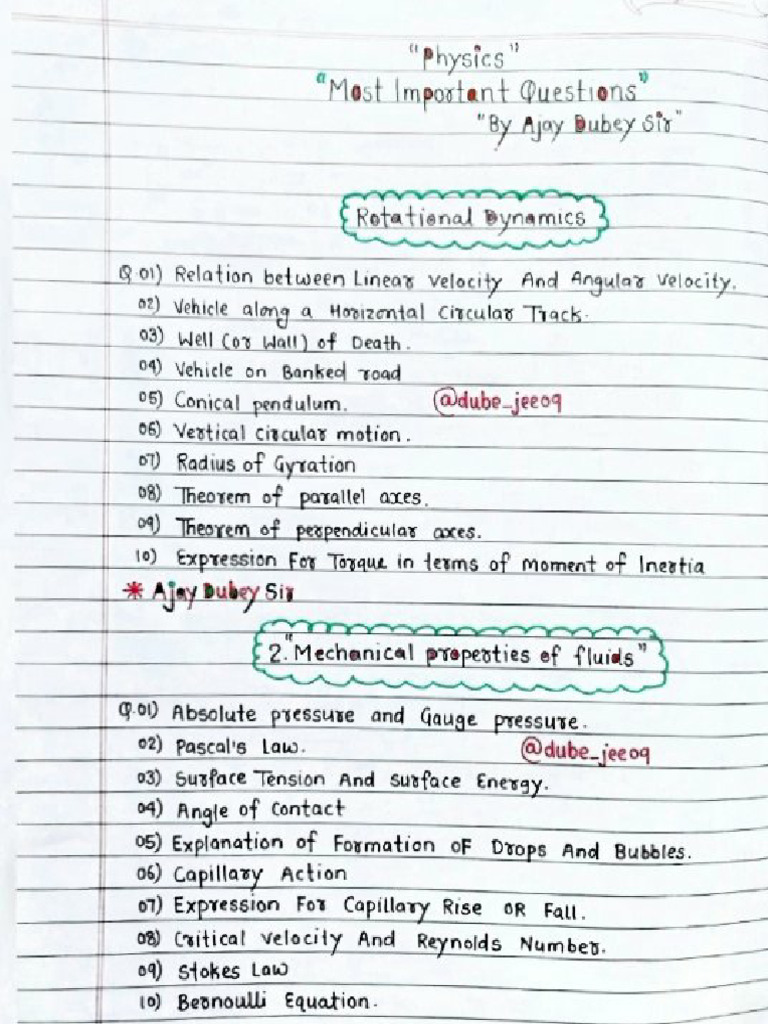 "Physics"
"Most Important Questions"
"By Ajay Dubey Sir"
Rotational Dynamics
Q.01) Relation between Linear Velocity And Angular Velocity.
02) Vehicle along a Horizontal Circular Track.
03) Well (or Wall) of Death.
04) Vehicle on Banked road
05) Conical pendulum. @dube_jee09
06) Vertical circular motion.
07) Radius of Gyration
08) Theorem of parallel axes.
09) Theorem of perpendicular axes.
10) Expression For Torque in terms of moment of Inertia
* Ajay Dubey Sir
2. "Mechanical properties of fluids"
Q.01) Absolute pressure and Gauge pressure.
02) Pascal's Law. @dube_jee09
03) Surface Tension And surface Energy.
04) Angle of Contact
05) Explanation of Formation OF Drops And Bubbles.
06) Capillary Action
07) Expression For Capillary Rise OR Fall.
08) Critical velocity And Reynolds Number.
09) Stokes Law
10) Bernoulli Equation.